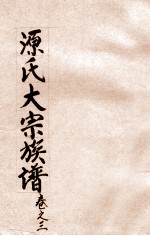 源氏大宗族谱
卷之三